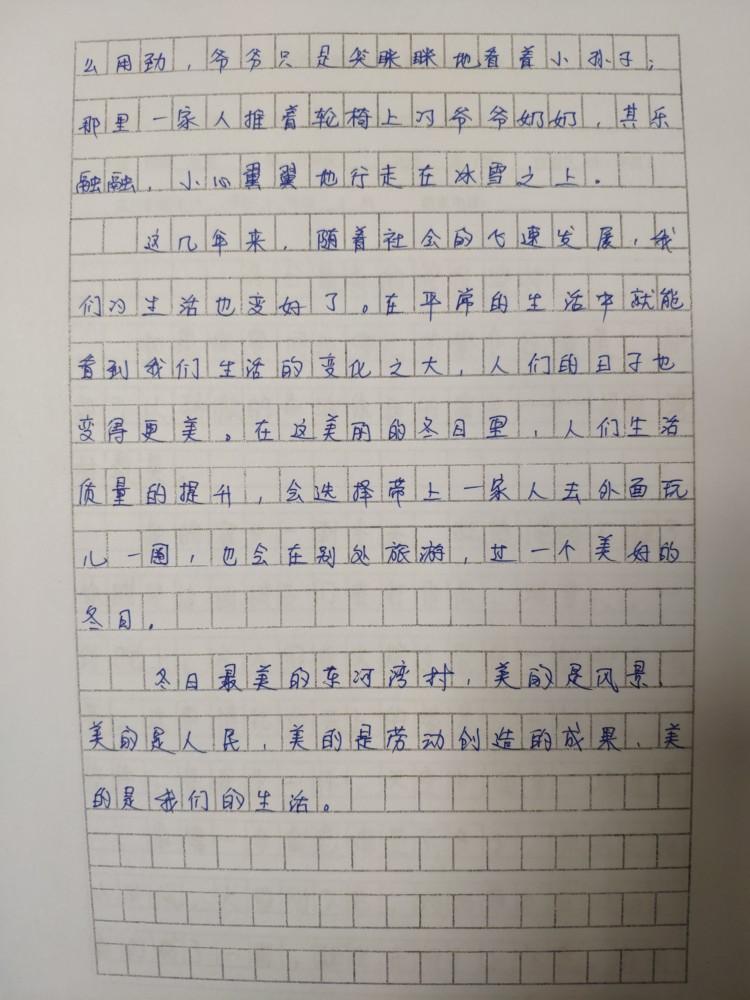 么用劲，爷爷只是笑眯眯地看着小孙子；
那里一家人推着轮椅上的爷爷奶奶，其乐
融融，小心翼翼地行走在冰雪之上。
这几年来，随着社会的飞速发展，我
们的生活也变好了。在平常的生活中就能
看到我们生活的变化之大，人们的日子也
变得更美。在这美丽的冬日里，人们生活
质量的提升，会选择带上一家人去外面玩
儿一圈，也会在别处旅游，过一个美好的
冬日。
冬日最美的东河湾村，美的是风景，
美的是人民，美的是劳动创造的成果，美
的是我们的生活。